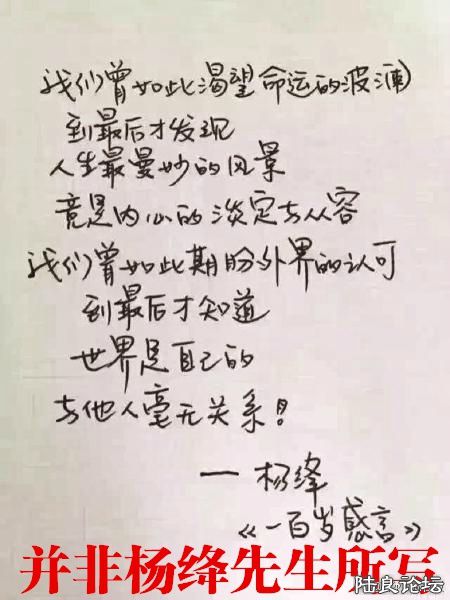 我们曾如此渴望命运的波澜
到最后才发现
人生最曼妙的风景
竟是内心的淡定与从容
我们曾如此期盼外界的认可
到最后才知道
世界是自己的
与他人毫无关系！
— 杨绛
《一百岁感言》
并非杨绛先生所写
陆良论坛